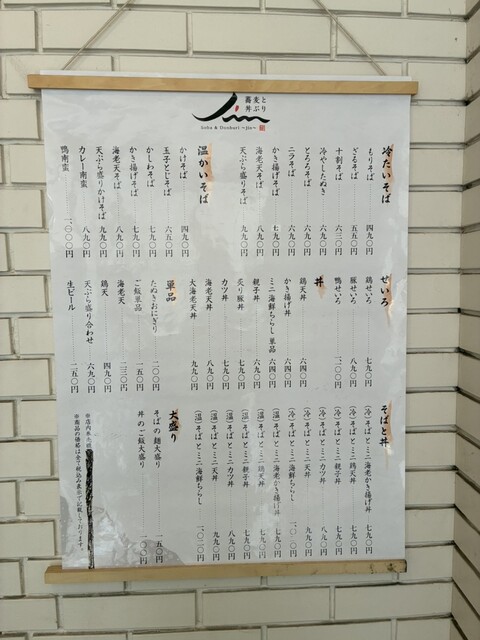 蕎麦と
丼ぶり
Jin
Soba & Donburi ~jin~
冷たいそば
もりそば 四九〇円
ざるそば 五五〇円
十割そば 六三〇円
冷やしたぬき 六九〇円
とろろそば 六九〇円
ニラそば 六九〇円
かき揚げそば 七九〇円
海老天そば 八九〇円
天ぷら盛りそば 九九〇円
温かいそば
かけそば 四九〇円
玉子とじそば 六五〇円
かしわそば 七九〇円
かき揚げそば 七九〇円
海老天そば 八九〇円
天ぷら盛りかけそば 九九〇円
カレー南蛮 八九〇円
鴨南蛮 一、〇〇〇円
せいろ
鶏せいろ 七九〇円
豚せいろ 八九〇円
鴨せいろ
丼
鶏天丼 六四〇円
かき揚げ丼 六四〇円
ミニ海鮮ちらし 単品 六四〇円
親子丼 六九〇円
炙り豚丼 七九〇円
カツ丼 七九〇円
海老天丼 八九〇円
大海老天丼 九九〇円
単品
たぬきおにぎり 二〇〇円
ご飯単品 一五〇円
海老天 二三〇円
鶏天 四九〇円
天ぷら盛り合わせ 六九〇円
生ビール 二五〇円
そばと丼
(冷)そばとミニ海老かき揚げ丼 七九〇円
(冷)そばとミニ鶏天丼 七九〇円
(冷)そばとミニ親子丼 七九〇円
(冷)そばとミニカツ丼 八九〇円
(冷)そばとミニ天丼 九九〇円
(冷)そばとミニ海鮮ちらし
(温)そばとミニ海老かき揚げ丼 七九〇円
(温)そばとミニ鶏天丼 七九〇円
(温)そばとミニ親子丼 七九〇円
(温)そばとミニカツ丼 八九〇円
(温)そばとミニ天丼 九九〇円
(温)そばとミニ海鮮ちらし
大盛り
そばの麺大盛り 一五〇円
丼のご飯大盛り
※店内
※商品の価格は全て税込み表示で記載しております。